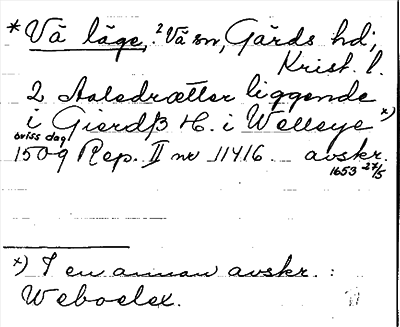 * Vä läge, ²Vä sn, Gärds hd,
Krist. l.
2 Aalsdrætter liggende
i Gierdß H. i Welleye x)
oviss dag!
1509 Rep. II nr 11416 avskr.
1653 27/5
x) I en annan avskr. :
Weboelex.